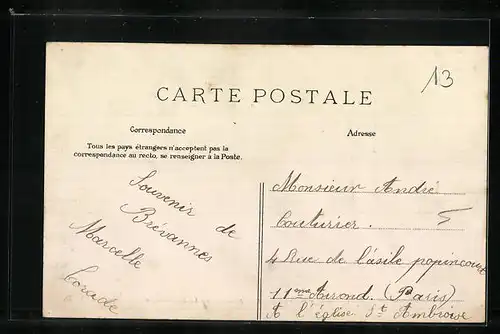 13
CARTE POSTALE
Correspondance
Adresse
Tous les pays étrangers n'acceptent pas la
correspondance au recto, se renseigner à la Poste.
Souvenir de
Brévannes
Marcelle
Monsieur André
Couturier.
4 Rue de l'asile popincourt
11eme Arrond. (Paris)
A l'église St Ambroise